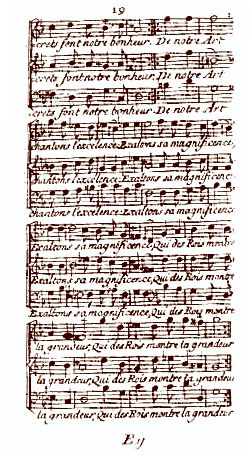 19
crets font notre bonheur. De notre Art
crets font notre bonheur. De notre Art
crets font notre bonheur. De notre Art
chantons l'excelence: Exaltons sa magnificence,
chantons l'excelence: Exaltons sa magnificence
chantons l'excelence: Exaltons sa magnificence
Exaltons sa magnificence, Qui des Rois montre
Exaltons sa magnificence, Qui des Rois montre
Exaltons sa magnificence, Qui des Rois montre
la grandeur, Qui des Rois montre la grandeur
la grandeur, Qui des Rois montre la grandeu
la grandeur, Qui des Rois montre la grandeur
E ij